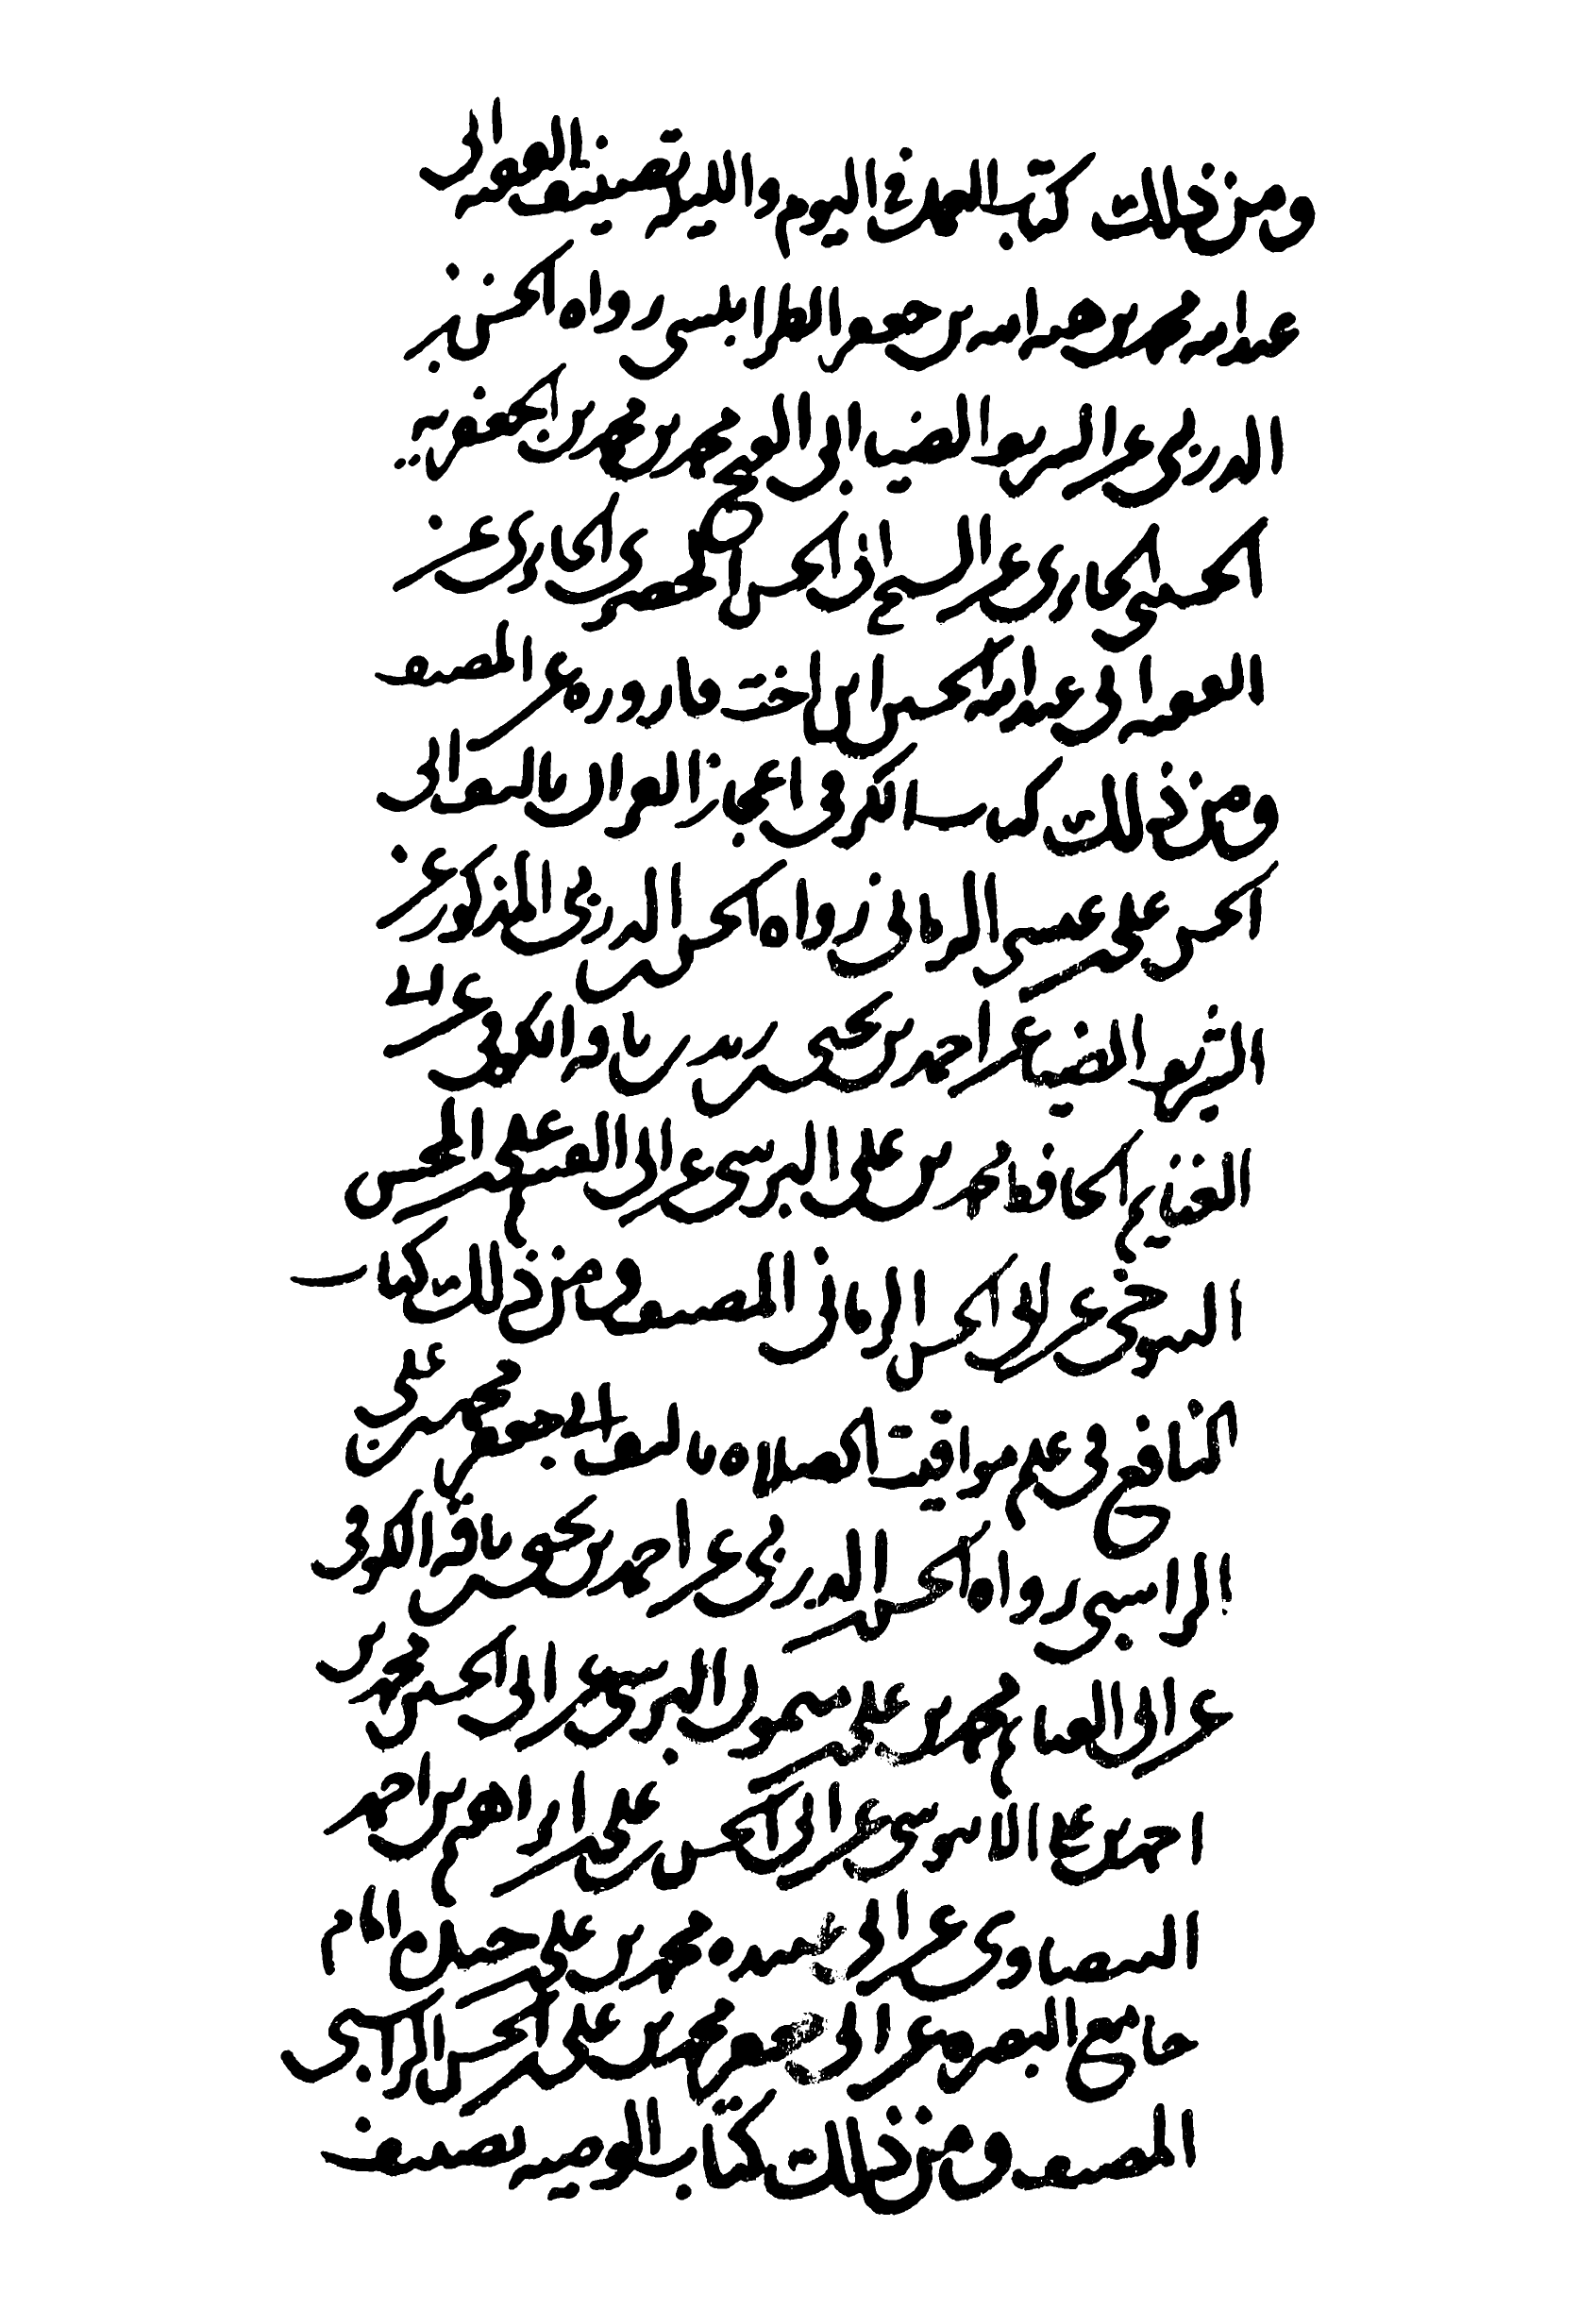 ومن ذلك كتاب العمل في اليوم والليلة تصنيف الفقيه ابي
عبد الله محمد بن هبة الله بن جعفر الطرابلسي رواه الحسن بن
الدربي عن الشريف الضيا ابي الفتح محمد بن محمد بن الجعفرية
الحسيني الحايري عن الشيخ ابي الحسن الحصيري الحايري عن
الفقيه ابي عبد الله الحسين ابن اخت قارورة عن المصنف
ومن ذلك كتاب النكر في اعجاز القران تاليف ابي
الحسن علي بن عيسى الرماني رواه الحسن بن الدربي المذكور عن
الشريف الضيا عن احمد بن يحيى بن زيد بن ناقة الكوفي عن ابي
الغنايم الحافظ محمد بن علي البرسي عن ابي القسم علي بن المحسن
التنوخي عن ابي الحسن الرماني المصنف ومن ذلك كتاب
النافع في علم مواقيت الصلاه تاليف ابي جعفر محمد بن علي بن
الراسبي رواه الحسن بن الدربي عن احمد بن يحيى بن ناقة الكوفي
عن ابي الغنايم محمد بن علي بن ميمون البرسي عن ابي الحسن محمد بن
احمد بن علي الانوسي عن ابي الحسن بن علي بن ابراهيم بن احمد
البيضاوي عن ابي عبيده محمد بن علي بن حيدان امام
جامع البصره عن ابي جعفر محمد بن علي بن الحسن الراسبي
المصنف ومن ذلك كتاب الوصيه تصنيف